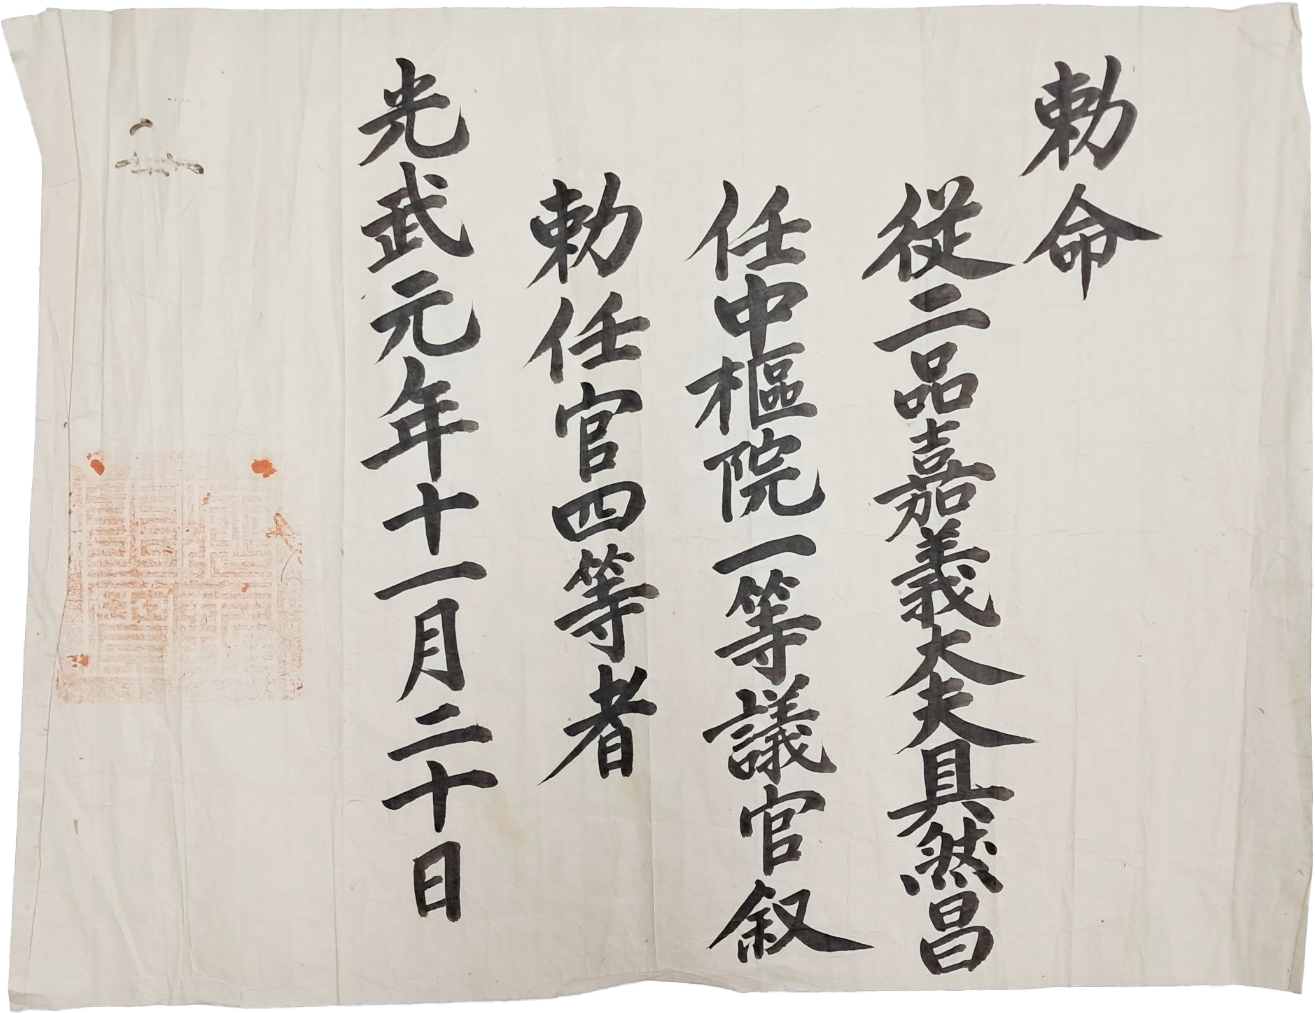 勅命
從二品嘉義大夫具然昌
任中樞院一等議官叙
勅任官四等者
光武元年十一月二十日